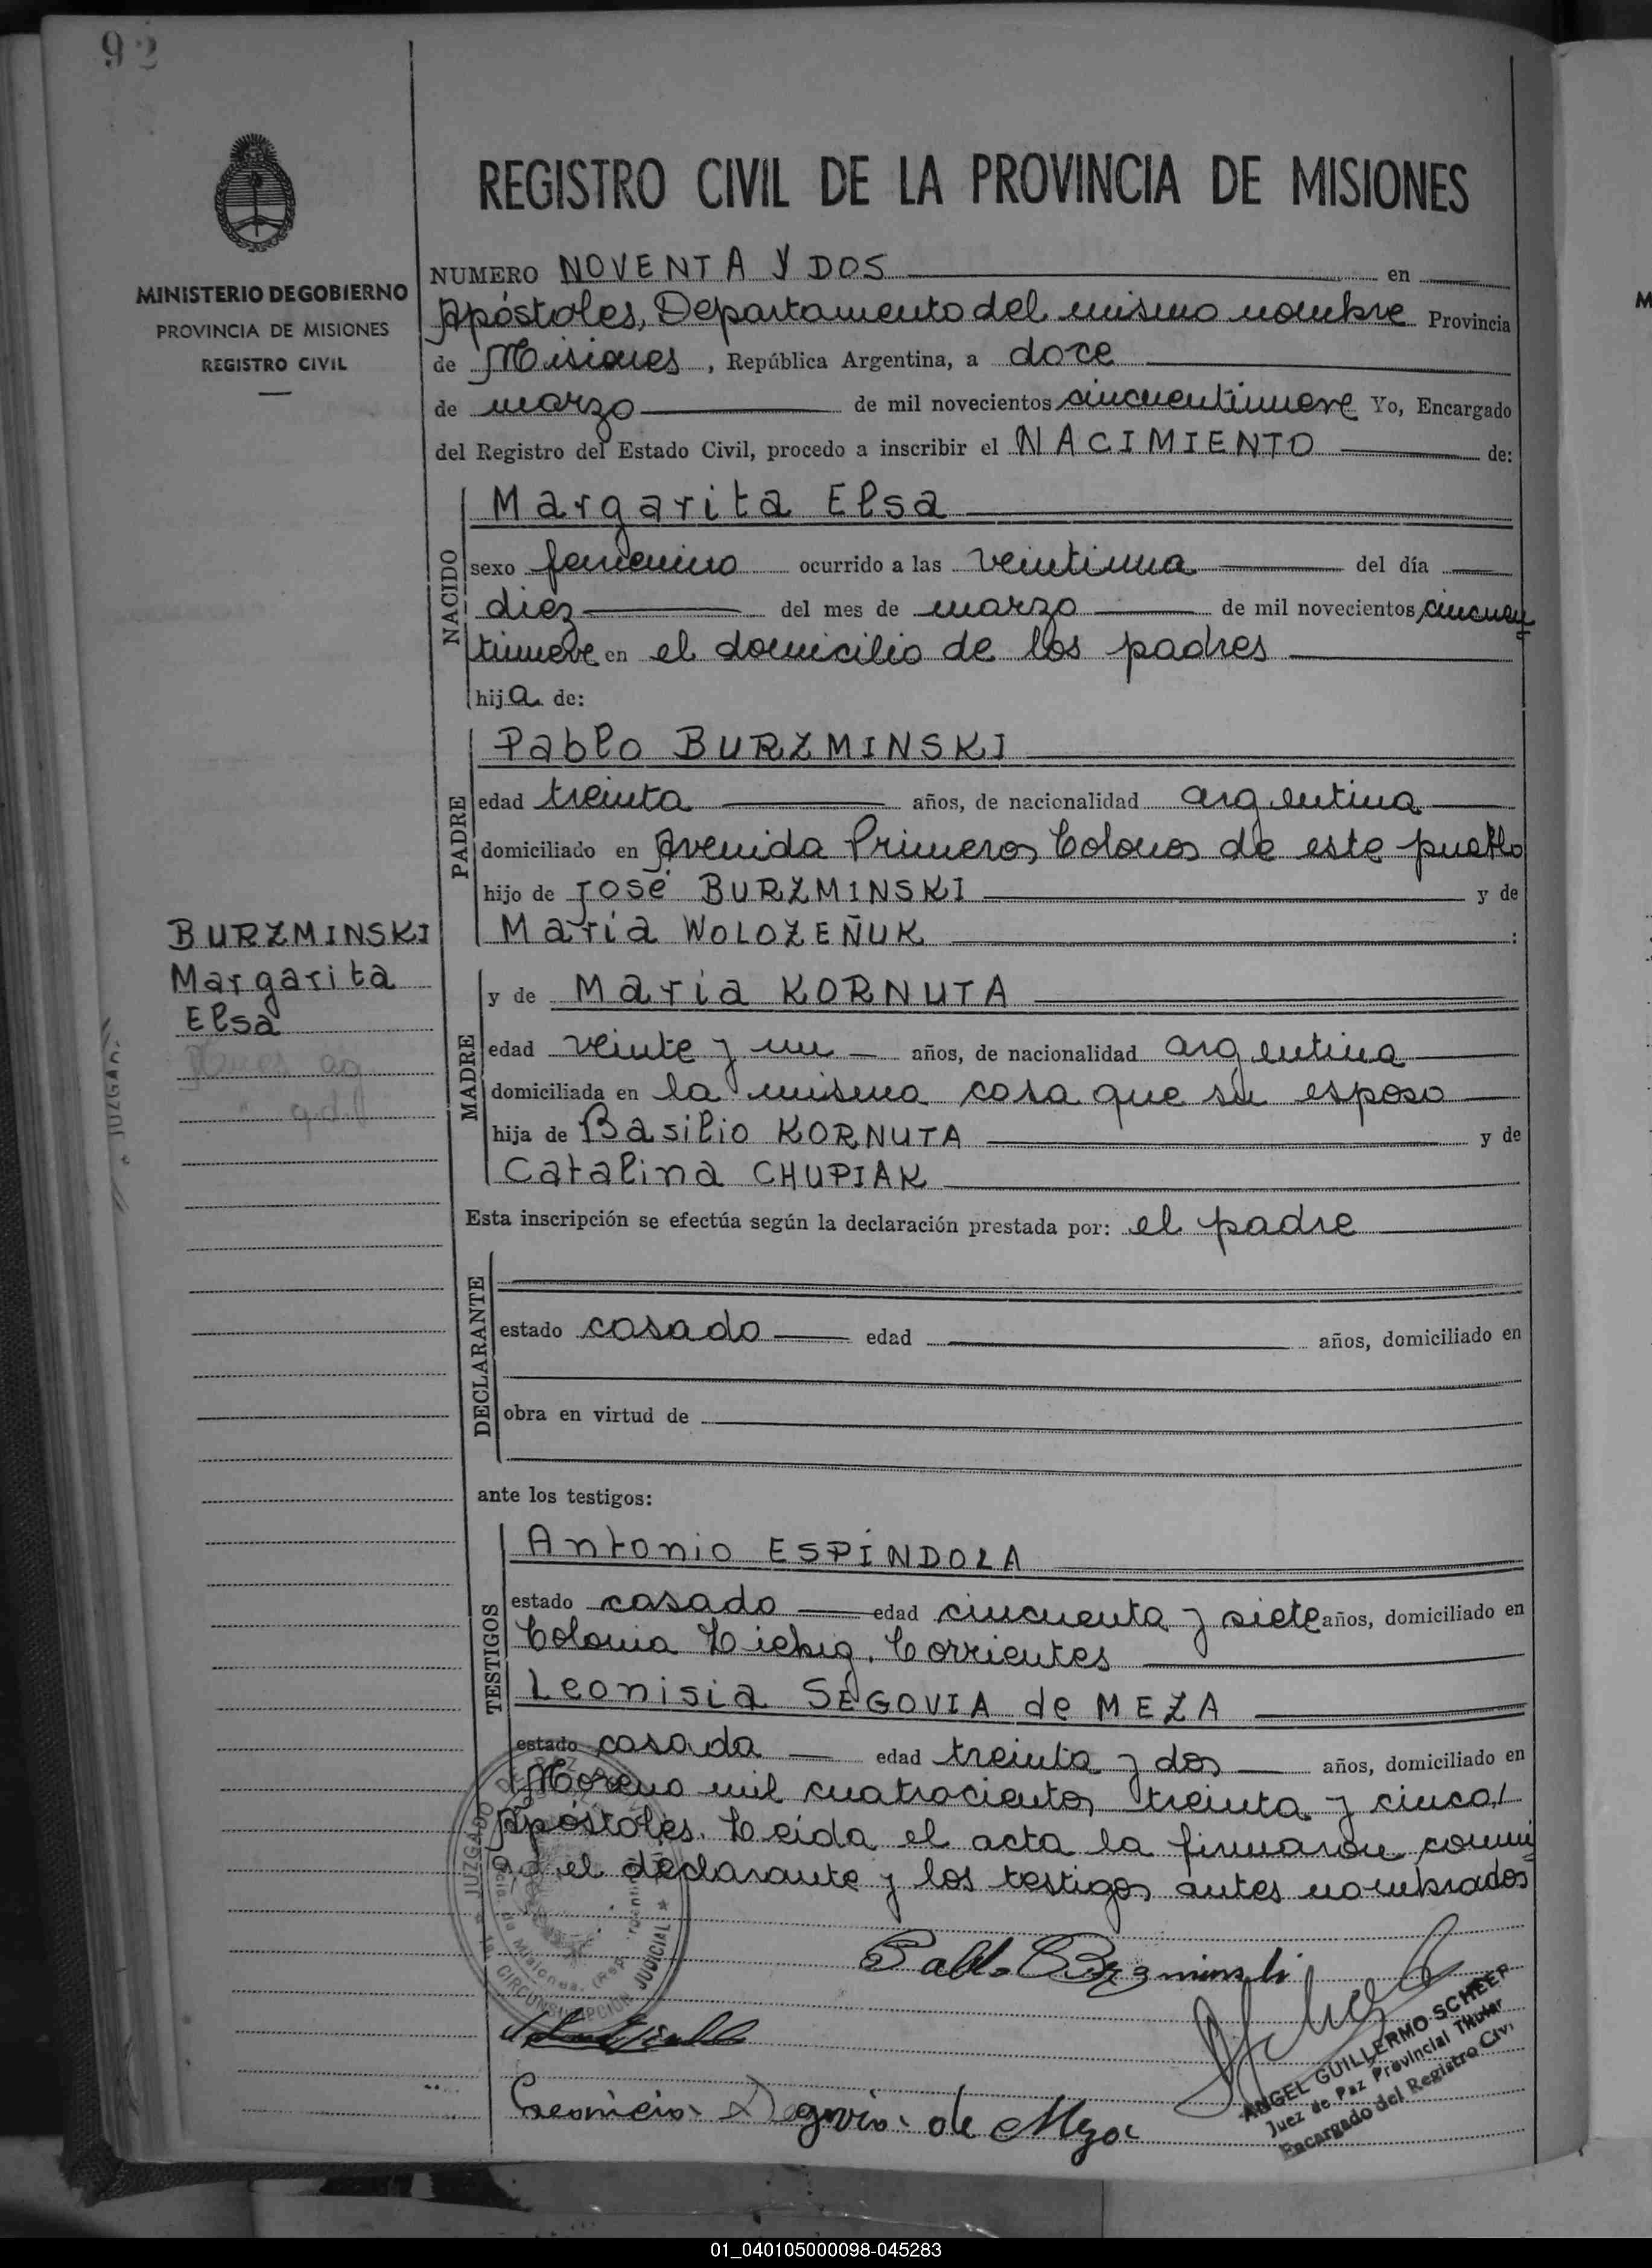 92
MINISTERIO DE GOBIERNO
PROVINCIA DE MISIONES
REGISTRO CIVIL
REGISTRO CIVIL DE LA PROVINCIA DE MISIONES
NUMERO NOVENTA Y DOS en
Apóstoles, Departamento del mismo nombre Provincia
de Misiones, República Argentina, a doce
de marzo de mil novecientos cincuentinueve Yo, Encargado
del Registro del Estado Civil, procedo a inscribir el NACIMIENTO de:
NACIDO
Margarita Elsa
sexo femenino ocurrido a las veintiuna del día
diez del mes de marzo de mil novecientos cincuen
tinueve en el domicilio de los padres
hija de:
PADRE
Pablo BURZMINSKI
edad treinta años, de nacionalidad argentina
domiciliado en Avenida Primeros Colonos de este pueblo
hijo de José BURZMINSKI y de
María WOLOZEÑUK :
BURZMINSKI
Margarita
Elsa
MADRE
y de María KORNUTA
edad veinte y un años, de nacionalidad argentina
domiciliada en la misma casa que su esposo
hija de Basilio KORNUTA y de
Catalina CHUPIAK
Esta inscripción se efectúa según la declaración prestada por: el padre
DECLARANTE
estado casado edad años, domiciliado en
obra en virtud de
ante los testigos:
TESTIGOS
Antonio ESPÍNDOLA
estado casado edad cincuenta y siete años, domiciliado en
Colonia Liebig. Corrientes
Leonisia SEGOVIA de MEZA
estado casada edad treinta y dos años, domiciliado en
Moreno mil cuatrocientos treinta y cinco,
Apóstoles. Leída el acta la firmaron conmi
go el declarante y los testigos antes nombrados
JUZGADO DE PAZ
Misiones
CIRCUNSCRIPCION JUDICIAL
Pablo Burzminski
Leonicia Segovia de Meza
ANGEL GUILLERMO SCHEEP
Juez de Paz Provincial Titular
Encargado del Registro Civ.
01_040105000098-045283